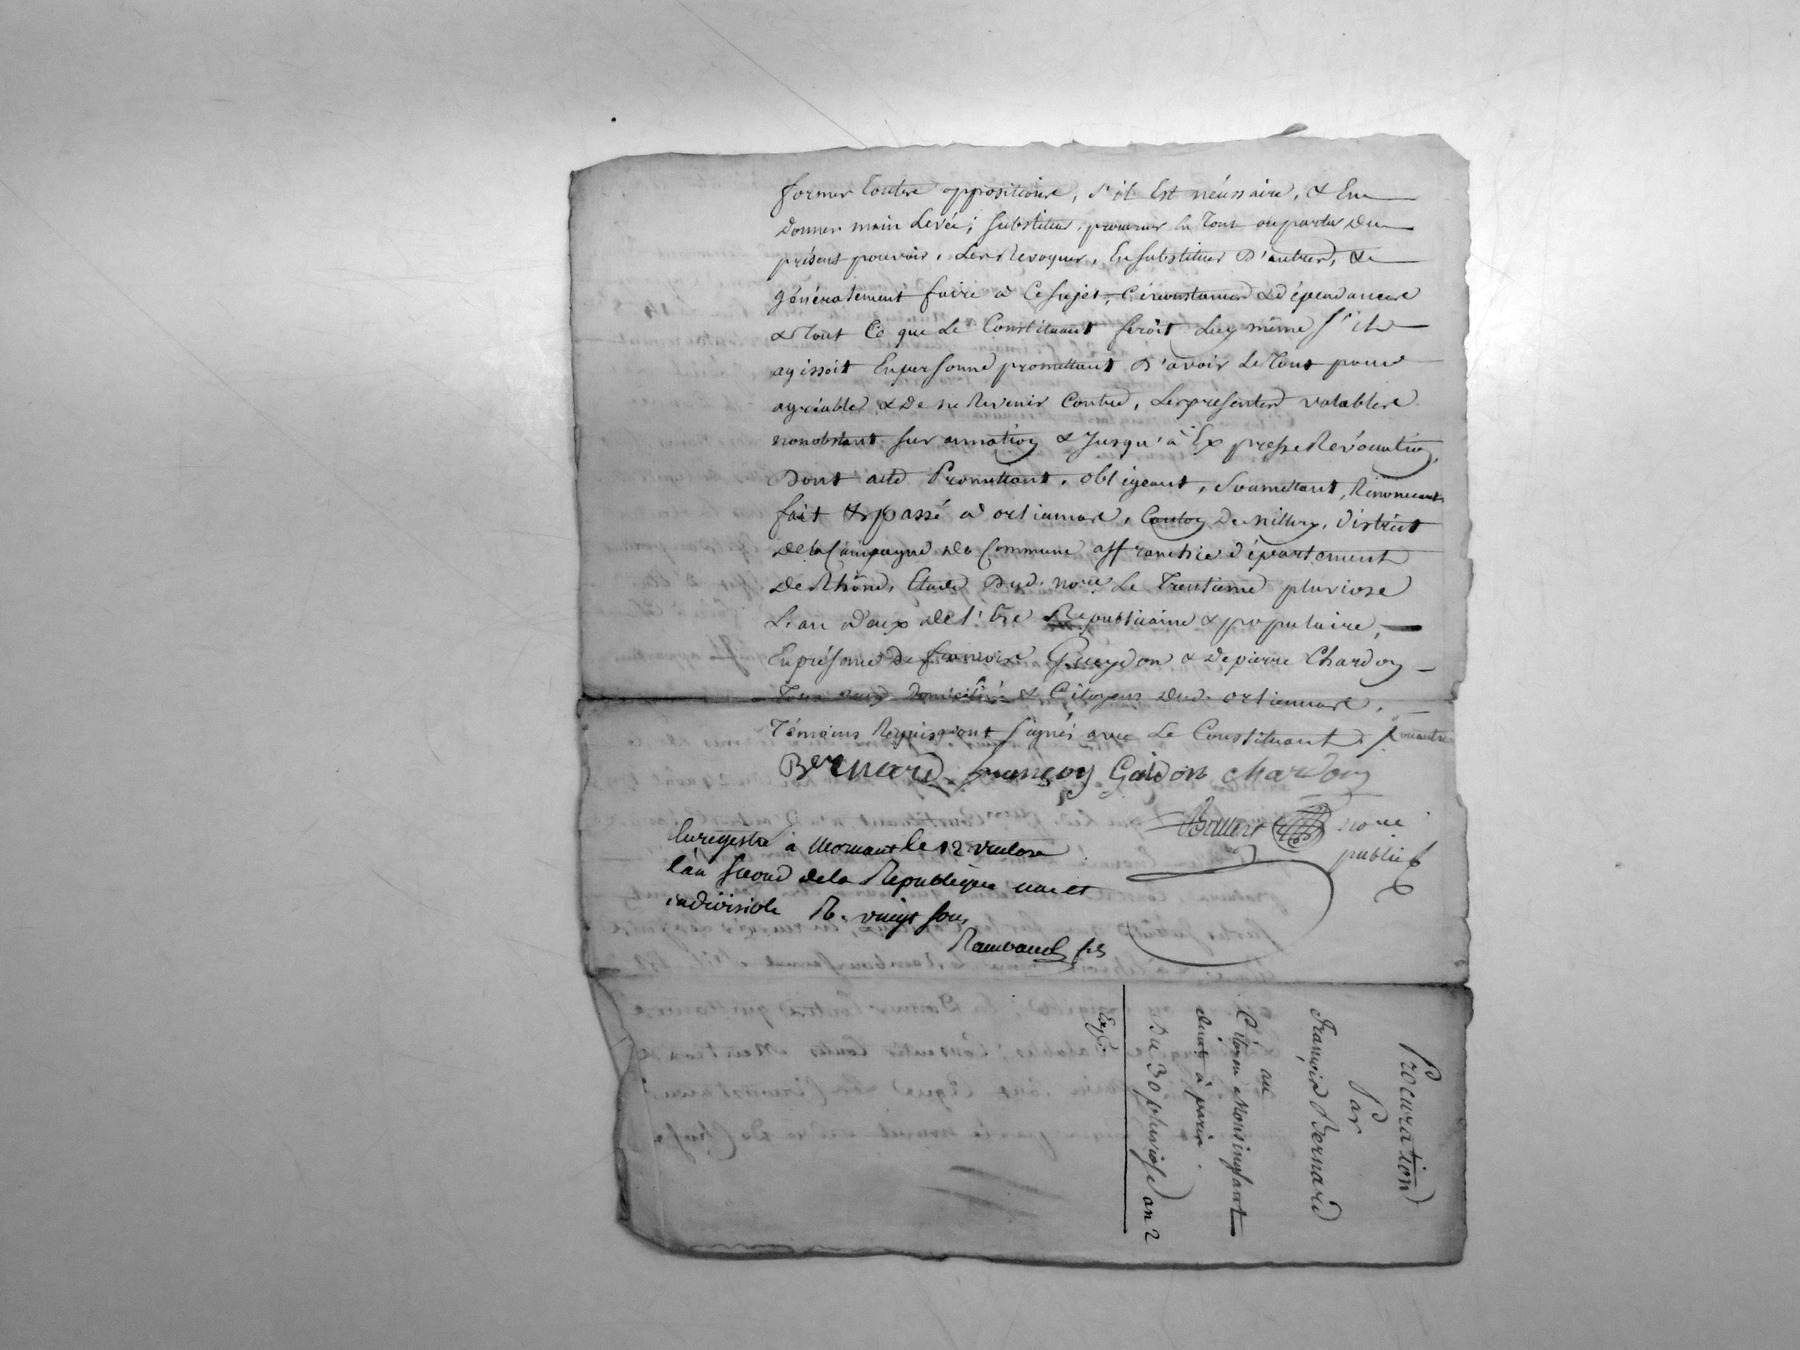 former toutes oppositions, s'il Est nécessaire, & En
donner main Levée; substituer, procureur En tout ou partie Du
présent pouvoir, Les Revoquer, En substituer D'autres, &
généralement faire à Ce sujet, Circonstances & dépendances
& tout Ce que Le Constituant feroit Luy même s'il
agissoit En personne promettant D'avoir Le tout pour
agréable & De ne Revenir Contre, Les présentes valables
nonobstant surannation & Jusqu'à Expresse Révocation,
Dont acte Promettant, obligeant, Soumettant, Renonceant
fait & passé à orliennard, Canton De millery, District
De la Campagne De Commune affranchie département
De Rhône, Etude Dud. noire Le Trentieme pluviose
L'an Deux De l'Ere Republicaine & populaire,
En présence De francois Gueydon & De pierre Chardon
Tous deux Domiciliés & Citoyens Dud. orliennard,
Témoins Requis qui ont signés avec Le Constituant,
Bernard françoy Gaidon chardon
noire
public
Enregistre à Mornant le 12 ventose
l'an second de la Republique une et
indivisible R. vingt sous
Raimbaud
Procuration
Par
François Bernard
au
Citoyen Monsinglant
demt à paris.
Du 30 pluviose an 2
Exp.